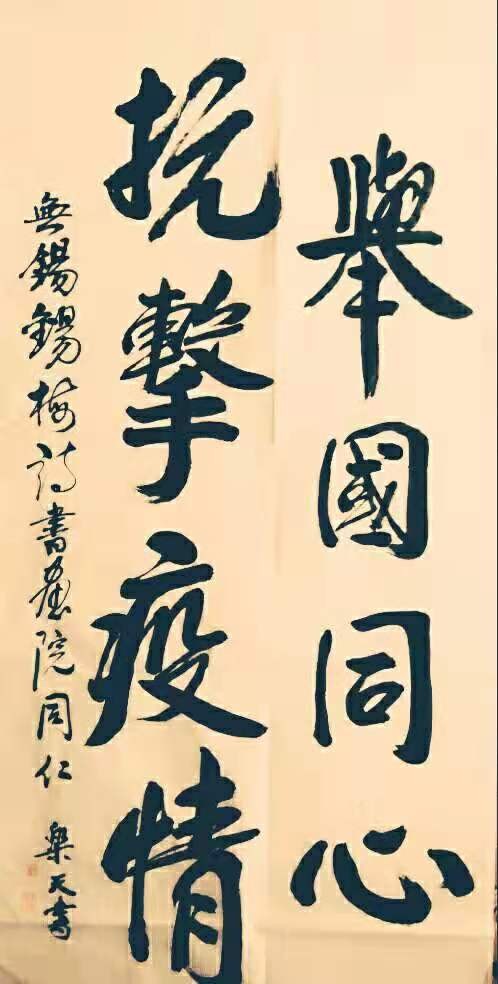 舉國同心
抗擊疫情
無錫錫梅詩書畫院同仁 樂天書